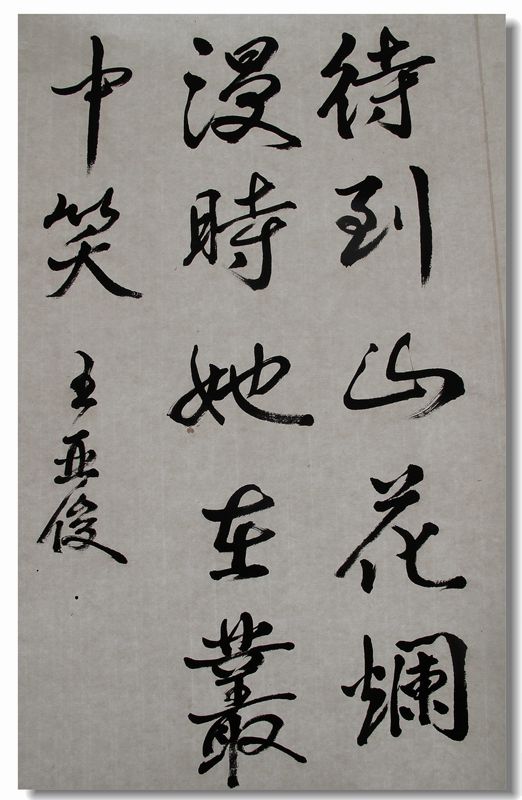 待到山花爛
漫時她在叢
中笑
王亚俊